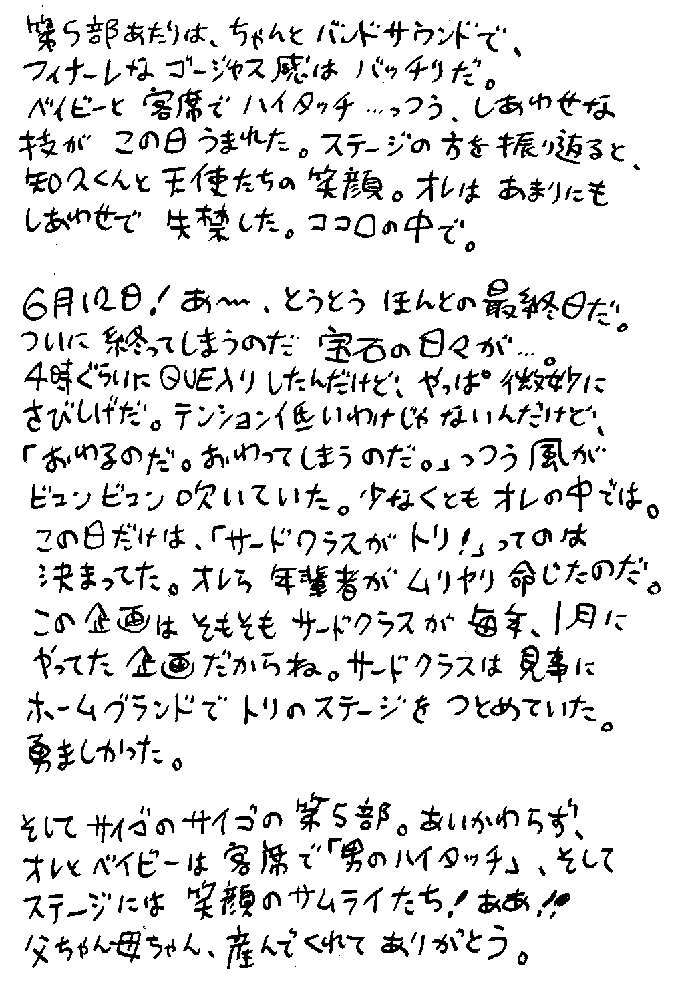 第5部あたりは、ちゃんとバンドサウンドで、
フィナーレなゴージャス感はバッチリだ。
ベイビーと客席でハイタッチ…っつう、しあわせな
技がこの日うまれた。ステージの方を振り返ると、
知久くんと天使たちの笑顔。オレはあまりにも
しあわせで失禁した。ココロの中で。
6月12日!あ〜、とうとうほんとの最終日だ。
ついに終ってしまうのだ宝石の日々が…。
4時ぐらいにQUE入りしたんだけど、やっぱ微妙に
さびしげだ。テンション低いわけじゃないんだけど、
「おわるのだ。おわってしまうのだ。」っつう風が
ビュンビュン吹いていた。少なくともオレの中では。
この日だけは、「サードクラスがトリ!」ってのは
決まってた。オレら年輩者がムリヤリ命じたのだ。
この企画はそもそもサードクラスが毎年、1月に
やってた企画だからね。サードクラスは見事に
ホームグランドでトリのステージをつとめていた。
勇ましかった。
そしてサイゴのサイゴの第5部。あいかわらず、
オレとベイビーは客席で「男のハイタッチ」、そして
ステージには笑顔のサムライたち!ああ!!
父ちゃん母ちゃん、産んでくれてありがとう。